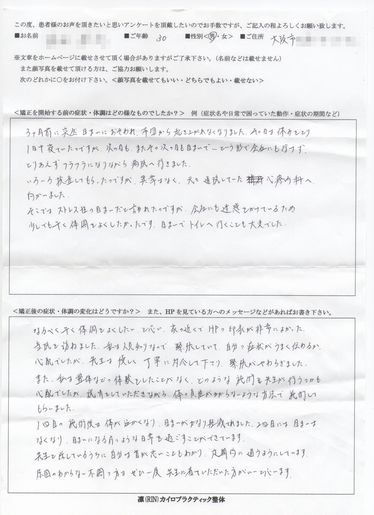 この度、患者様のお声を頂きたいと思いアンケートを頂戴したいのでお手数ですが、ご記入の程よろしくお願い致します。
■お名前 ■ご年齢 30 ■性別(男・女) ■ご住所 大阪市
※文章をホームページに載せさせて頂く場合がありますがご了承下さい。(名前などは載せません)
また顔写真を載せて頂ける方は、ご協力お願いします。
次のどれかに○をお付け下さい。<顔写真を載せてもいい・どちらでもよい・載せない>
<矯正を開始する前の症状・体調はどの様なものでしたか?> 例(症状名や日常で困っていた動作・症状の期間など)
3ヶ月前に突然 目まいにおそわれ、布団から起き上がれなくなりました。その日は休みをとり
1日中寝ていたのですが、次の日も、またその次の日も目まいで
とりあえずフラフラになりながら病院へ行きました。
いろいろ検査してもらったのですが、異常はなく、
向かいました。
そこでは ストレス性の目まいだと言われたのですが、会社にも迷惑をかけているため
少しでも早く体調をよくしたかったです。目まいで トイレへ行くことも大変でした。
<矯正後の症状・体調の変化はどうですか?> また、HPを見ている方へのメッセージなどがあればお書き下さい。
なるべく早く体調をよくしたいと思い、家の近くで HPの印象が非常によかった
当院を訪ねました。私は人見知りなので緊張していて、自分の症状がうまく伝わるか
心配でしたが、先生は優しく丁寧に対応して下さり 緊張がやわらぎました。
また、私は整体などの体験をしたことがなく、どのような施術を先生が行うのかも
心配でしたが、説明をしていただきながら、体に負担がかからないような方法で施術して
もらいました。
1回目の施術後は体が軽くなり、目まいがかなり軽減されました。2回目には、目まいは
なくなり、目まいになる前のような日常を過ごすことができています。
先生と話しているうちに自分は首が悪いこともわかり、定期的に通うようにしています。
原因のわからない不調の方は ぜひ一度 先生に看ていただいた方がいいと思います。
凛(RIN)カイロプラクティック整体